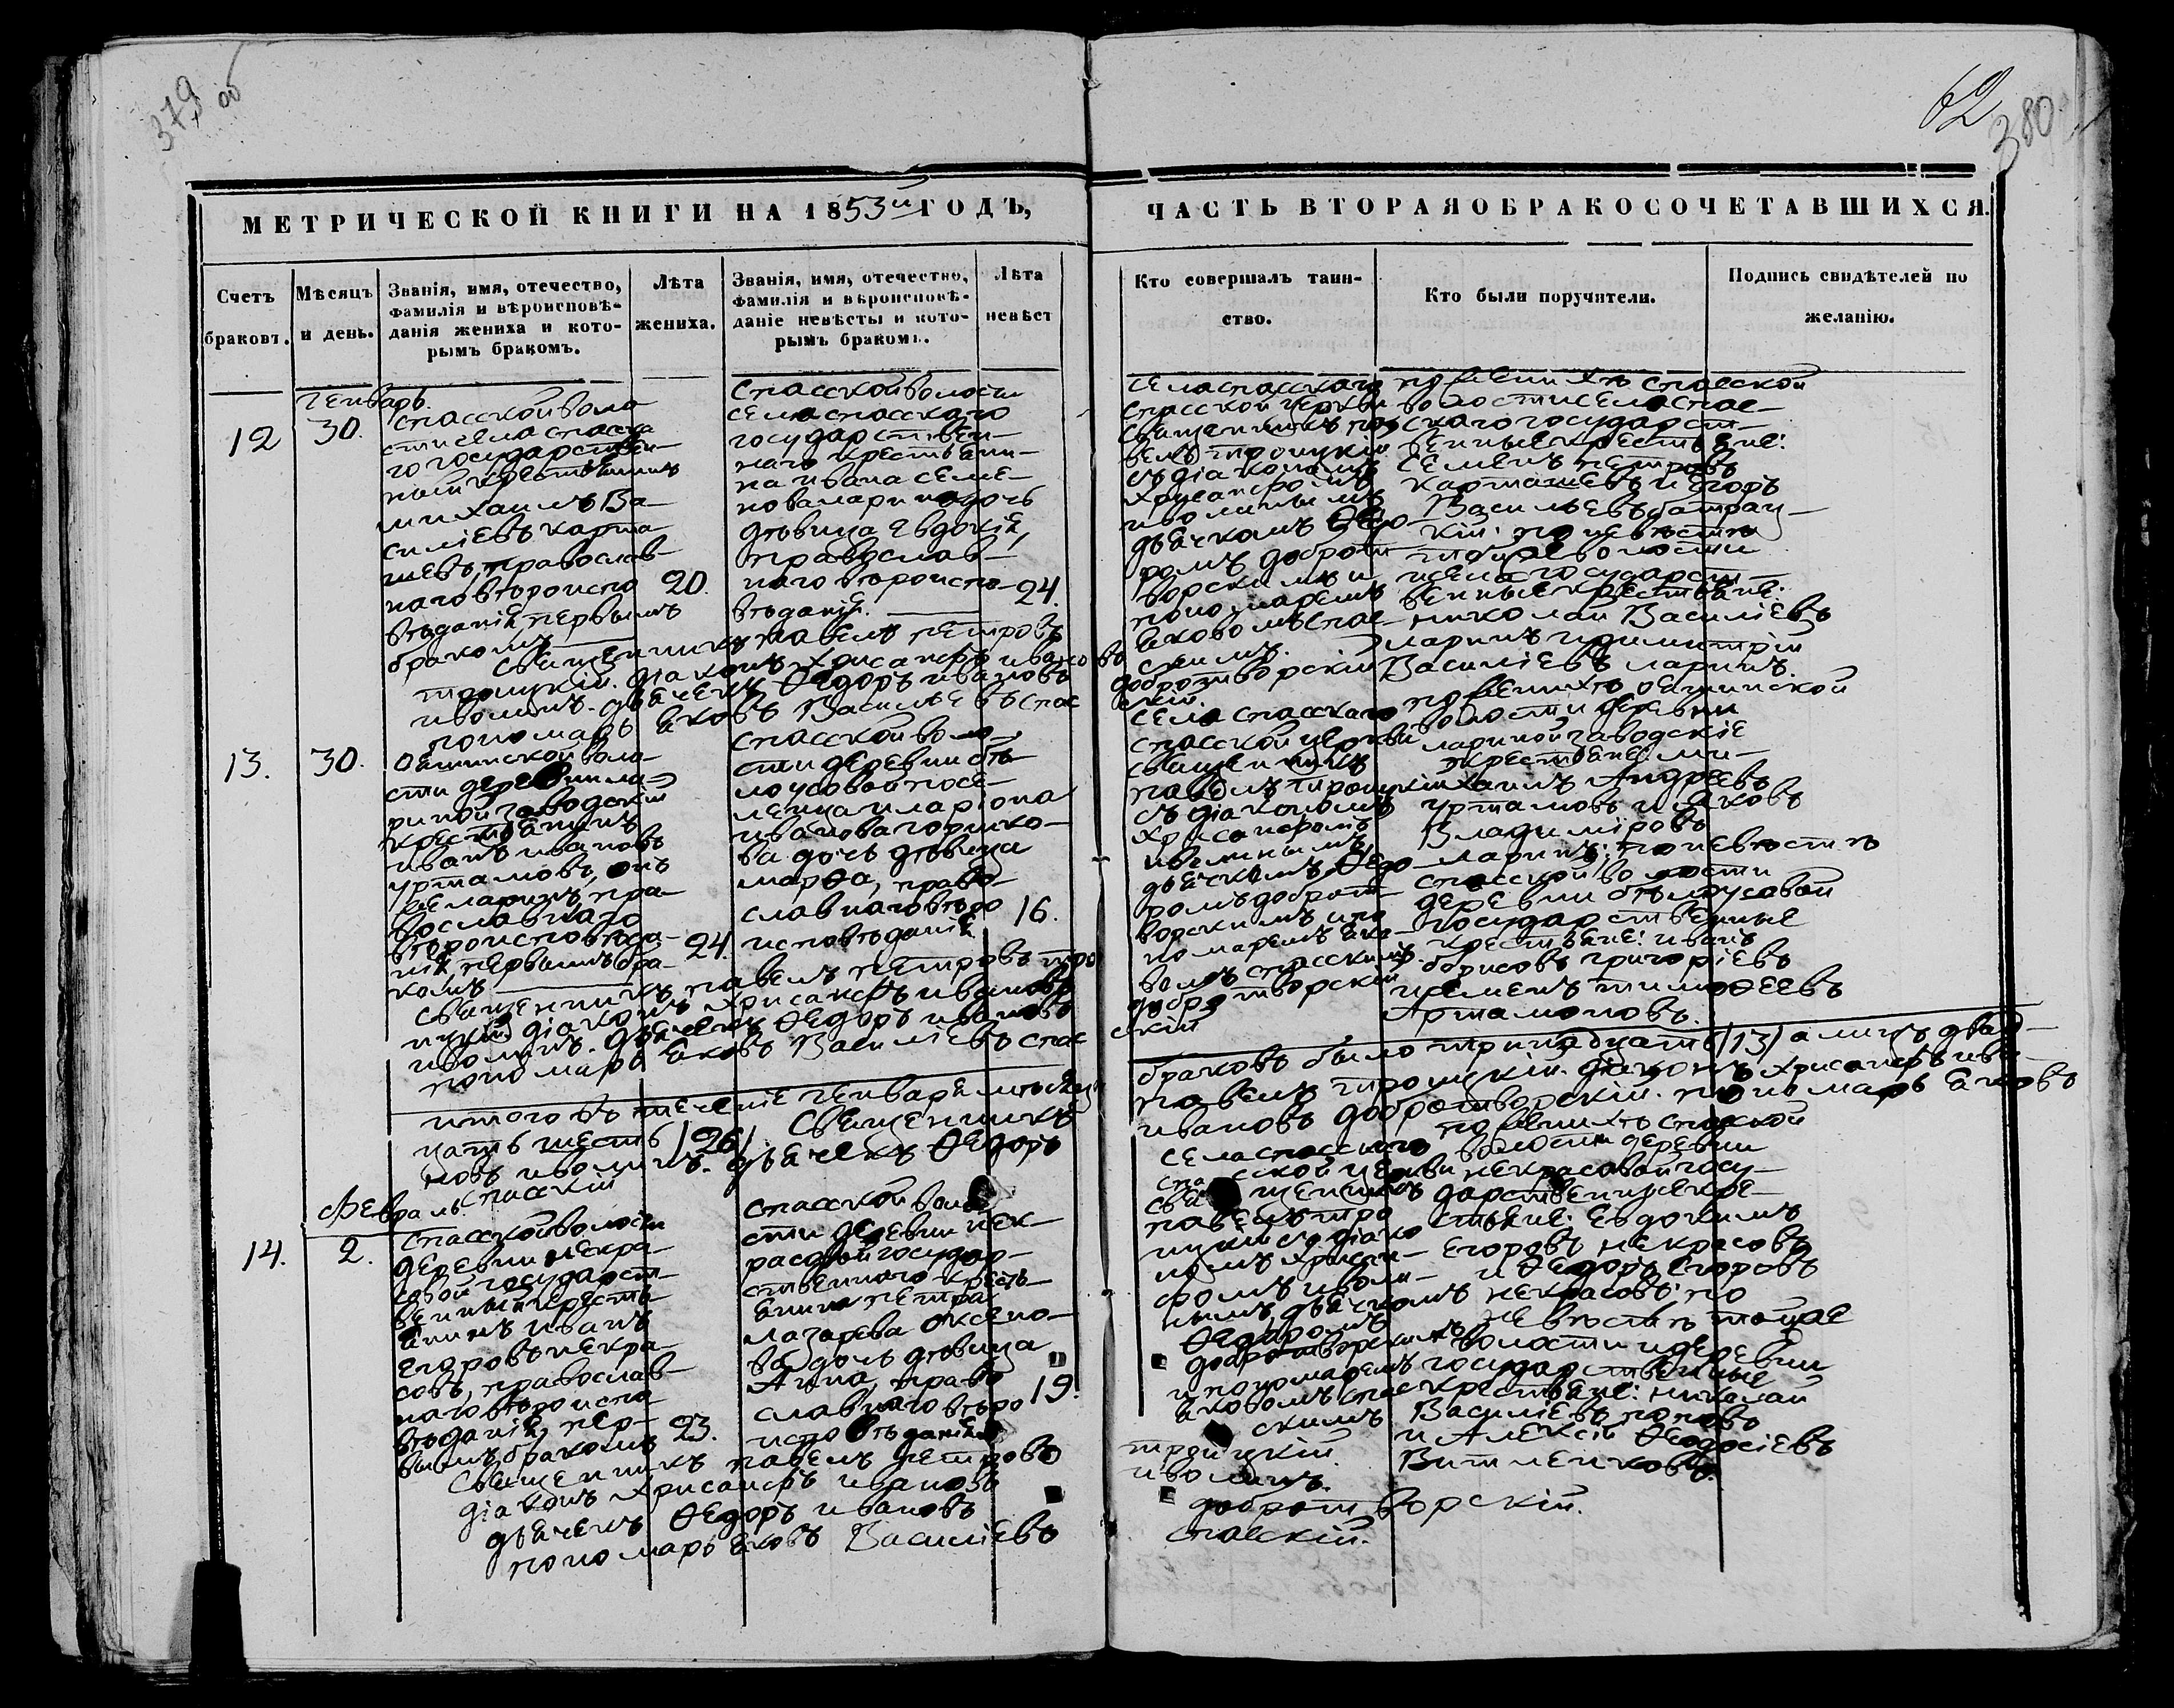 379 об
62
380
МЕТРИЧЕСКОЙ КНИГИ НА 1853й ГОДЪ,
ЧАСТЬ ВТОРАЯ О БРАКОСОЧЕТАВШИХСЯ.
Счетъ
браковъ.
Мѣсяцъ
и день.
Званія, имя, отечество,
фамилія и вѣроисповѣ-
данія жениха и кото-
рымъ бракомъ.
Лѣта
жениха.
Званія, имя, отечество,
фамилія и вѣроисповѣ-
даніе невѣсты и кото-
рымъ бракомъ.
Лѣта
невѣст
Кто совершалъ таин-
ство.
Кто были поручители.
Подпись свидѣтелей по
желанію.
Генварь.
12
30.
Спасской воло
сти села спаска
го государствен-
ный крестьянинъ
михаилъ Ва-
силіевъ карта
шевъ, православ-
наго вѣроиспо
вѣданія первымъ
бракомъ
20.
Спасской волости
села спасскаго
государствен-
наго крестьяни-
на ивана семе-
нова ларина дочь
дѣвица Евдокія,
православ-
наго вѣроиспо-
вѣданія.
24.
села спасскаго
спасской церкви
священникъ па
велъ троицкій
съ діакономъ
хрисанфомъ
иволинымъ
дьячкомъ Ѳедо-
ромъ доброт
ворскимъ и
пономаремъ
яковомъ спас-
скимъ.
по женихѣ спасской
волости села спас-
скаго государст-
венные крестьяне:
семенъ петровъ
карташевъ и Егоръ
Васильевъ батрац-
кій: по невѣстѣ
тойже волости
и села государст-
венные крестьяне:
николай Василіевъ
ларинъ и димитрій
Василіевъ ларинъ.
священникъ павелъ петровъ
троицкій. діаконъ хрисанфъ ивановъ
иволинъ. дьячекъ Ѳедоръ ивановъ добротворскій
пономарь яковъ Васильевъ спасскій.
13.
30.
Ояшинской воло-
сти деревни ла-
риной заводскій
крестьянинъ
иванъ ивановъ
уртамовъ, онъ
же ларинъ, пра-
вославнаго
вѣроисповѣда-
нія первымъ бра-
комъ
24.
спасской воло-
сти деревни бѣ-
лоусовой посе-
ленца иларіона
иванова горшко-
ва дочь дѣвица
марѳа, право-
славнаго вѣро
исповѣданія
16.
села спасскаго
спасской церкви
священникъ
павелъ троицкій
съ діакономъ
хрисанфомъ
иволинымъ
дьячкомъ Ѳедо-
ромъ доброт-
ворскимъ и по
номаремъ яко-
вомъ спасскимъ.
по женихѣ ояшинской
волости деревни
лариной заводскіе
крестьяне: ми-
хаилъ Андреевъ
уртамовъ и яковъ
Владиміровъ
ларинъ: по невѣстѣ
спасской волости
деревни бѣлоусовой
государственные
крестьяне: иванъ
борисовъ григоріевъ
и семенъ тимоѳеевъ
Артамоновъ.
священникъ павелъ петровъ трои
цкій діаконъ хрисанфъ ивановъ
иволинъ. дьячекъ Ѳедоръ ивановъ добротворскій
пономарь яковъ Василіевъ спасскій
итого въ теченіе генваря мѣсяца браковъ было тринадцать (13) а лицъ двад-
цать шесть (26). священникъ павелъ троицкій. діаконъ хрисанфъ ива-
новъ иволинъ. дьячекъ Ѳедоръ ивановъ добротворскій. пономарь яковъ
спасскій
Февраль.
14.
2.
спасской волости
деревни некра-
совой государст-
венный кресть
янинъ иванъ
Егоровъ некра-
совъ, православ-
наго вѣроиспо
вѣданія, пер-
вымъ бракомъ
23.
спасской воло
сти деревни нек-
расовой государ-
ственнаго кресть-
янина петра
лазарева оксено-
ва дочь дѣвица
Анна, право
славнаго вѣро
исповѣданія
19.
села спасскаго
спасской церкви
священникъ
павелъ тро
ицкій съ діако
номъ хрисан-
фомъ иволи-
нымъ, дьячкомъ
Ѳедоромъ
добротворскимъ
и пономаремъ
яковомъ спас
скимъ
по женихѣ спасской
волости деревни
некрасовой госу-
дарственные кре-
стьяне: Евдокимъ
Егоровъ некрасовъ
и Ѳедоръ Егоровъ
некрасовъ: по
невѣстѣ тойже
волости и деревни
государственные
крестьяне: николай
Василіевъ поповъ
и Алексій Ѳеодосіевъ
священникъ павелъ петровъ троицкій.
діаконъ хрисанфъ ивановъ иволинъ.
дьячекъ Ѳедоръ ивановъ добротворскій.
пономарь яковъ Василіевъ спасскій.